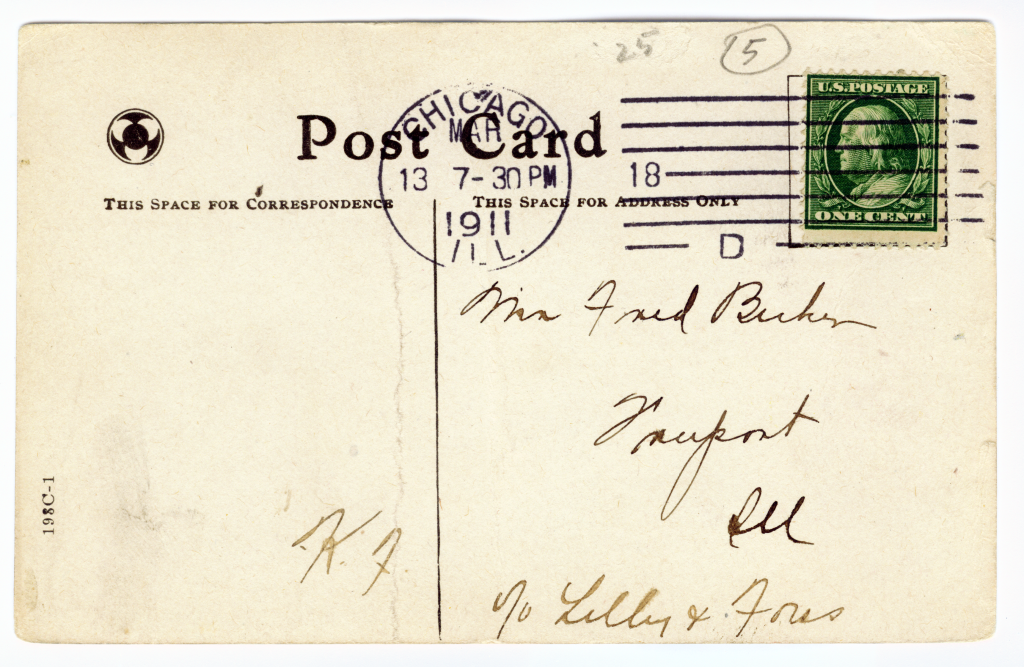 25 (5)
U.S. POSTAGE
ONE CENT
Post Card
THIS SPACE FOR CORRESPONDENCE
THIS SPACE FOR ADDRESS ONLY
CHICAGO
MAR
13 7-30 PM
1911
ILL.
18
D
Fred
Freeport
Ill
c/o Lilly & Foss
K. F.
198C-1